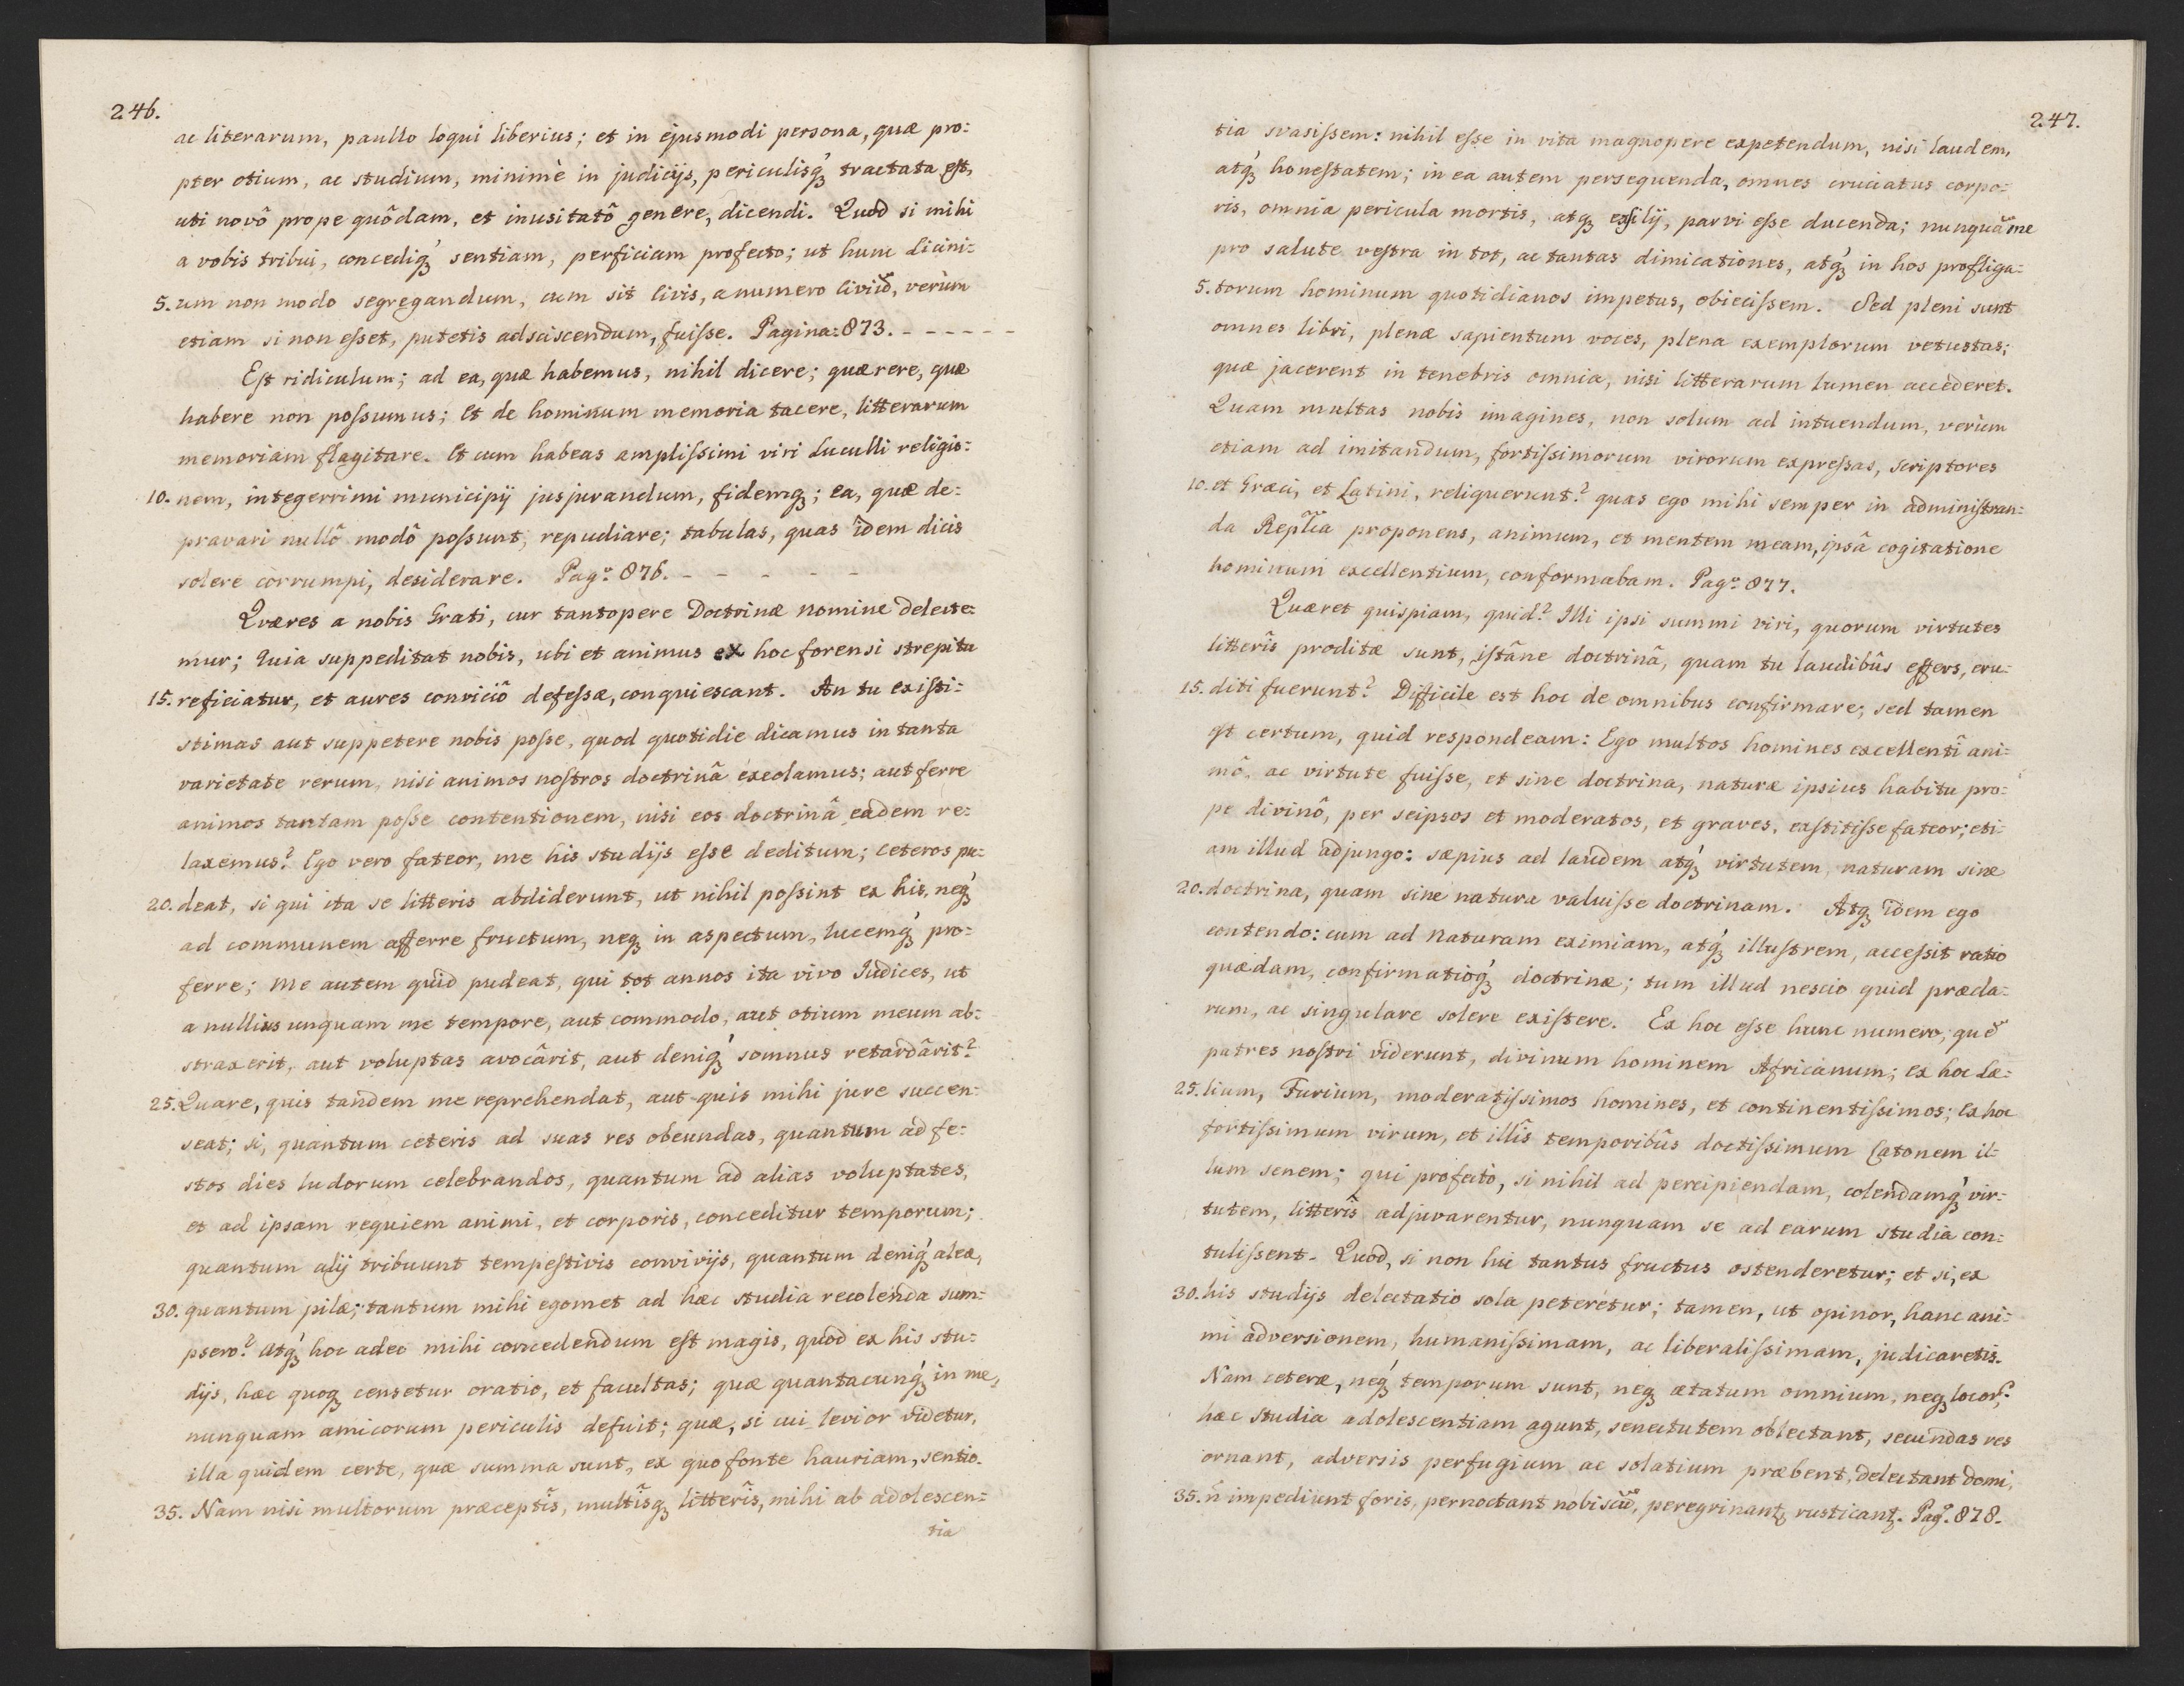 246.
ac literarum, paullo loqui liberius; et in ejusmodi persona, quæ pro:
pter otium, ac studium, minimè in judicijs, periculisq́ꝫ tractata est,
uti novô prope quôdam, et inusitatô genere, dicendi. Quod si mihi
a vobis tribui, concediq́ꝫ sentiam, perficiam profecto; ut hunc Licini:
5. um non modo segregandum, cum sit Civis, a numero Civiũ, verùm
etiam si non eſset, putetis adsciscendum, fuiſse. Pagina: 873. - - - - - -
Est ridiculum; ad ea, quæ habemus, nihil dicere; quærere, quæ
habere non poſsumus; Et de hominum memoria tacere, litterarum
memoriam flagitare. Et cum habeas ampliſsimi viri Luculli religio:
10. nem, integerrimi municipij jusjurandum, fidemqꝫ; ea, quæ de:
pravari nullô modô poſsunt, repudiare; tabulas, quas idem dicis
solere corrumpi, desiderare. Pagᵃ: 876. - - - - -
Quæres a nobis Grati, cur tantopere Doctrinæ nomine delecte:
mur; Quia suppeditat nobis, ubi et animus ex hoc forensi strepitu
15. reficiatur, et aures conviciô defeſsæ, conquiescant. An tu existi:
stimas aut suppetere nobis poſse, quod quotidie dicamus in tanta
varietate rerum, nisi animos nostros doctrinâ excolamus; aut ferre
animos tantam poſse contentionem, nisi eos doctrinâ eadem re:
laxemus? Ego vero fateor, me his studijs eſse deditum; Ceteros pu:
20. deat, si qui ita se litteris abdiderunt, ut nihil poſsint ex his, neq́ꝫ
ad communem afferre fructum, neqꝫ in aspectum, lucemq́ꝫ pro:
ferre; Me autem quid pudeat, qui tot annos ita vivo Judices, ut
a nullius unquam me tempore, aut commodo, aut otium meum ab:
straxerit, aut voluptas avocârit, aut deniq́ꝫ somnus retardârit?
25. Quare, quis tandem me reprehendat, aut quis mihi jure succen:
seat; si, quantum ceteris ad suas res obeundas, quantum ad fe:
stos dies ludorum celebrandos, quantum ad alias voluptates,
et ad ipsam requiem animi, et corporis, conceditur temporum;
quantum alij tribuunt tempestivis convivijs, quantum deniq́ꝫ aleæ,
30. quantum pilæ; tantum mihi egomet ad hæc studia recolenda sum:
psero? Atq́ꝫ hoc adeo mihi concedendum est magis, quod ex his stu:
dijs, hæc quoqꝫ censetur oratio, et facultas; quæ quantacunq́ꝫ in me,
nunquam amicorum periculis defuit; quæ, si cui levior videtur,
illa quidem certe, quæ summa sunt, ex quo fonte hauriam, sentio.
35. Nam nisi multorum præceptîs, multîsqꝫ litterîs, mihi ab adolescen:
tia
247.
tia svasiſsem: nihil eſse in vita magnopere expetendum, nisi laudem,
atq́ꝫ honestatem; in ea autem persequenda, omnes cruciatus corpo:
ris, omnia pericula mortis, atqꝫ exsilij, parvi eſse ducenda; nunquã me
pro salute vestra in tot, ac tantas dimicationes, atq́ꝫ in hos profliga:
5. torum hominum quotidianos impetus, obieciſsem. Sed pleni sunt
omnes libri, plenæ sapientum voces, plena exemplorum vetustas;
quæ jacerent in tenebris omnia, nisi litterarum lumen accederet.
Quam multas nobis imagines, non solum ad intuendum, verùm
etiam ad imitandum, fortiſsimorum virorum expreſsas, scriptores
10. et Græci, et Latini, reliquerunt? quas ego mihi semper in administran:
da Repĩca proponens, animum, et mentem meam, ipsâ cogitatione
hominum excellentium, conformabam. Pagᵃ: 877.
Quæret quispiam, quid? Illi ipsi summi viri, quorum virtutes
litterîs proditæ sunt, istâne doctrinâ, quam tu laudibûs effers, eru:
15. diti fuerunt? Difficile est hoc de omnibus confirmare; sed tamen
est certum, quid respondeam: Ego multos homines excellentî ani:
mô, ac virtute fuiſse, et sine doctrina, naturæ ipsius habitu pro:
pe divinô, per seipsos et moderatos, et graves, exstitiſse fateor; eti:
am illud adjungo: sæpius ad laudem atq́ꝫ virtutem, naturam sine
20. doctrina, quam sine natura valuiſse doctrinam. Atqꝫ idem ego
contendo: cum ad Naturam eximiam, atq́ꝫ illustrem, acceſsit ratio
quædam, confirmatioq́ꝫ doctrinæ; tum illud nescio quid præcla:
rum, ac singulare solere existere. Ex hoc eſse hunc numero, quẽ
patres nostri viderunt, divinum hominem Africanum; ex hoc Læ:
25. lium, Furium, moderatiſsimos homines, et continentiſsimos; Ex hoc
fortiſsimum virum, et illîs temporibûs doctiſsimum Catonem il:
lum senem; qui profectò, si nihil ad percipiendam, colendamq́ꝫ vir:
tutem, litterîs adjuvarentur, nunquam se ad earum studia con:
tuliſsent. Quod, si non hic tantus fructus ostenderetur; et si, ex
30. his studijs delectatio sola peteretur; tamen, ut opinor, hanc ani:
mi adversionem, humaniſsimam, ac liberaliſsimam, judicaretis.
Nam ceteræ, neq́ꝫ temporum sunt, neqꝫ ætatum omnium, neqꝫ locor̃:
hæc studia adolescentiam agunt, senectutem oblectant, secundas res
ornant, adversis perfugium ac solatium præbent, delectant domi,
35. ñ impediunt foris, pernoctant nobiscũ, peregrinantꝫ, rusticantꝫ. Pagᵃ. 878.